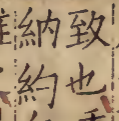 致也
納約